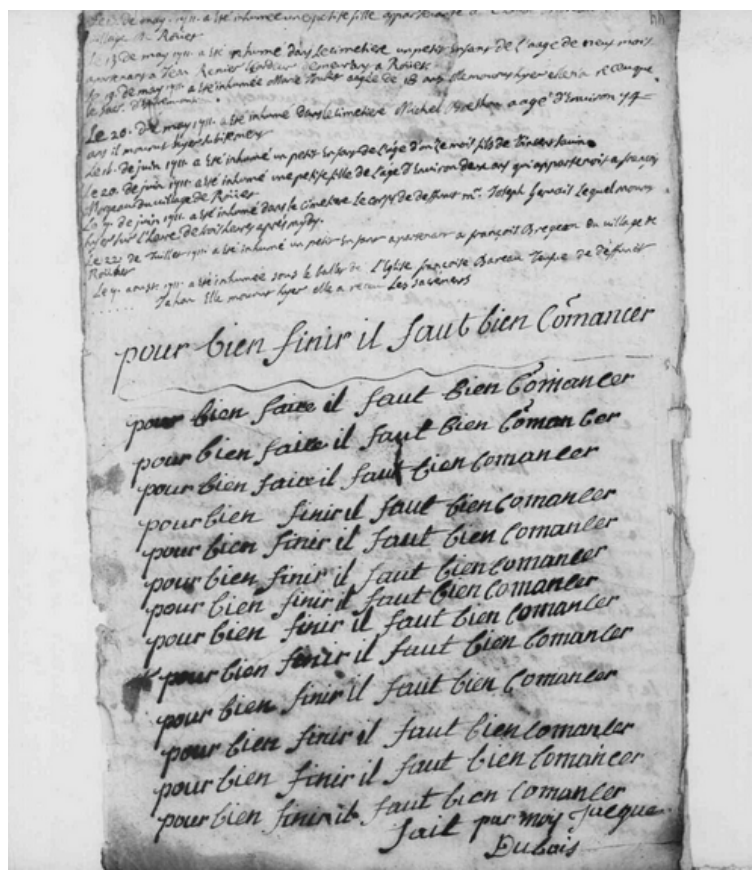 village de Roüer
Le 13 de may 1711. a été inhumé dans le cimetiere un petit enfant de l'aage de neuf mois
apartenant a Jean Renier demeurant a Roüer
Le 19. de may 1711. a été inhumée Marie aagée de 18 ans elle mourut hyer elle a receu que
le sac.
Le 20. De may 1711. a été inhumé dans le cimetiere Michel aagé d'Environ 74
ans il mourut hyer
Le 16. de juin 1711. a été inhumé un petit enfant de l'age d'onze mois fils de
Le 20. de juin 1711. a été inhumé une petite fille de l'age d'Environ deux ans qui appartenoit a françois
Moreau du village de Roüer
de juin 1711. a été inhumé dans le cimetiere le corps de deffunt mr. Joseph Gervais Lequel mourut
hyer sur l'heure de trois heures apres mydy.
Le 22. de Juillet 1711 a été inhumé un petit enfant apartenant a françois Bregeon du village de
Rouher
Le 9. aoust 1711. a été inhumée sous le ballet de L'Eglise françoise Bareau veufve de deffunct
Jahan Elle mourut hyer elle a receu Les sacemens
pour bien finir il faut bien Comancer
pour bien faire il faut bien Comancer
pour bien faire il faut bien Comancer
pour bien faire il faut bien Comancer
pour bien finir il faut bien Comancer
pour bien finir il faut bien Comancer
pour bien finir il faut bien Comancer
pour bien finir il faut bien Comancer
pour bien finir il faut bien Comancer
pour bien finir il faut bien Comancer
pour bien finir il faut bien Comancer
pour bien finir il faut bien Comancer
pour bien finir il faut bien Comancer
pour bien finir il faut bien Comancer
fait par moy Jacque
Dubois